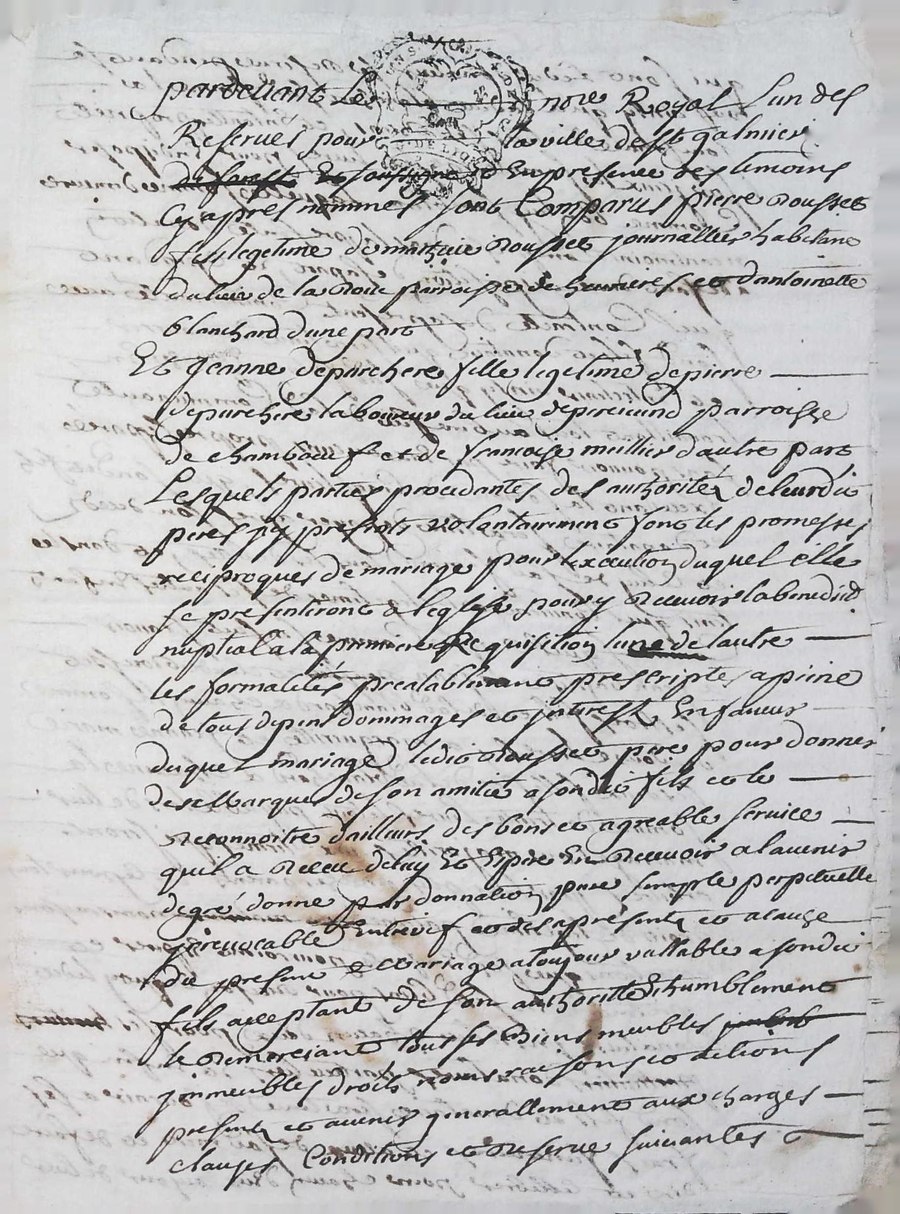 pardevant Le notre Royal Lun des
Reservés pour la ville de st galmier
de forest Et soussigné Et En presence des temoins
Cy apres nommes sont Comparus pierre Rousset
fils legetime de mathieu Rousset journallier habitant
du lieu de la parroisse de et dantoinette
blanchard dune part
Et Jeanne deparchere fille legetime de pierre
deparchere laboureur du lieu de parroisse
de chambœuf et de francoise meillier dautre part
Lesquels parties procedantes des authorité de leurdit
peres icy presents volontairement font les promesses
reciproques de mariage pour lexecution duquel elle
se presenteront a leglise pour y recevoir la benedict.
nuptial a la premiere Requisition lune de lautre
les formalités prealablement prescriptes a peine
de tous depens dommages et interest En faveur
duquel mariage ledit Rousset pere pour donner
des Marques de son amitié a sondit fils et le
reconnoitre dailleurs des bons et agreable service
quil a Receu de luy Et Espere En Recevoir a lavenir
de gré donne par donnation pure simple perpetuelle
jrrevocable Entrevif et des a present et a cause
du present Mariage a toujour vallable a sondit
fils acceptant de son authorité Et humblement
le Remerciant tous ses Biens meubles
jmmeubles droits noms raisons et actions
present et avenir generallement aux charges
clauses Conditions et Reserve suivantes